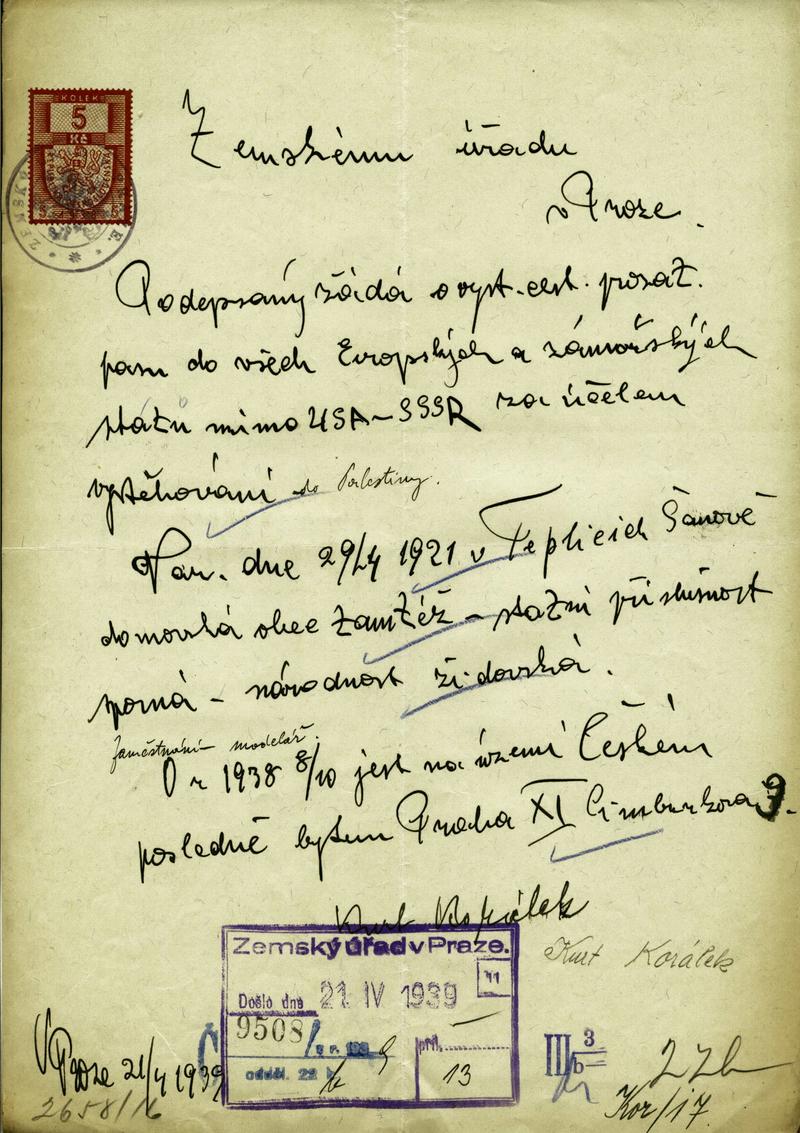 KOLEK
5
Kč
Zemskému úřadu
v Praze.
Podepsaný žádá o vyst. cest. prozat.
pasu do všech Evropských a zámořských
států mimo USA - SSSR za účelem
vystěhování do Palestiny.
Nar. dne 29/4 1921 v Teplicích Šanově
domovská obec - státní příslušnost
sporná - národnost židovská.
Zaměstnání modelář.
Od r 1938 8/10 jest na území Českém
posledně bytem Praha XI Cimburkova 9.
Kurt Korálek
Kurt Korálek
Zemský úřad v Praze.
11
Došlo dne 21 IV 1939
9508/
odděl. 22 b
příl.
13
V Praze 21/4 1939
2658/16
III 3
b
Kor/17.